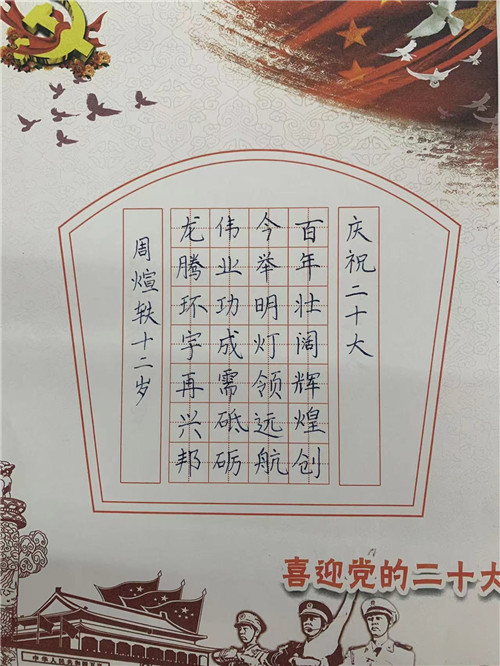 庆祝二十大
百年壮阔辉煌创
今举明灯领远航
伟业功成需砥砺
龙腾环宇再兴邦
周煊轶十二岁
喜迎党的二十大